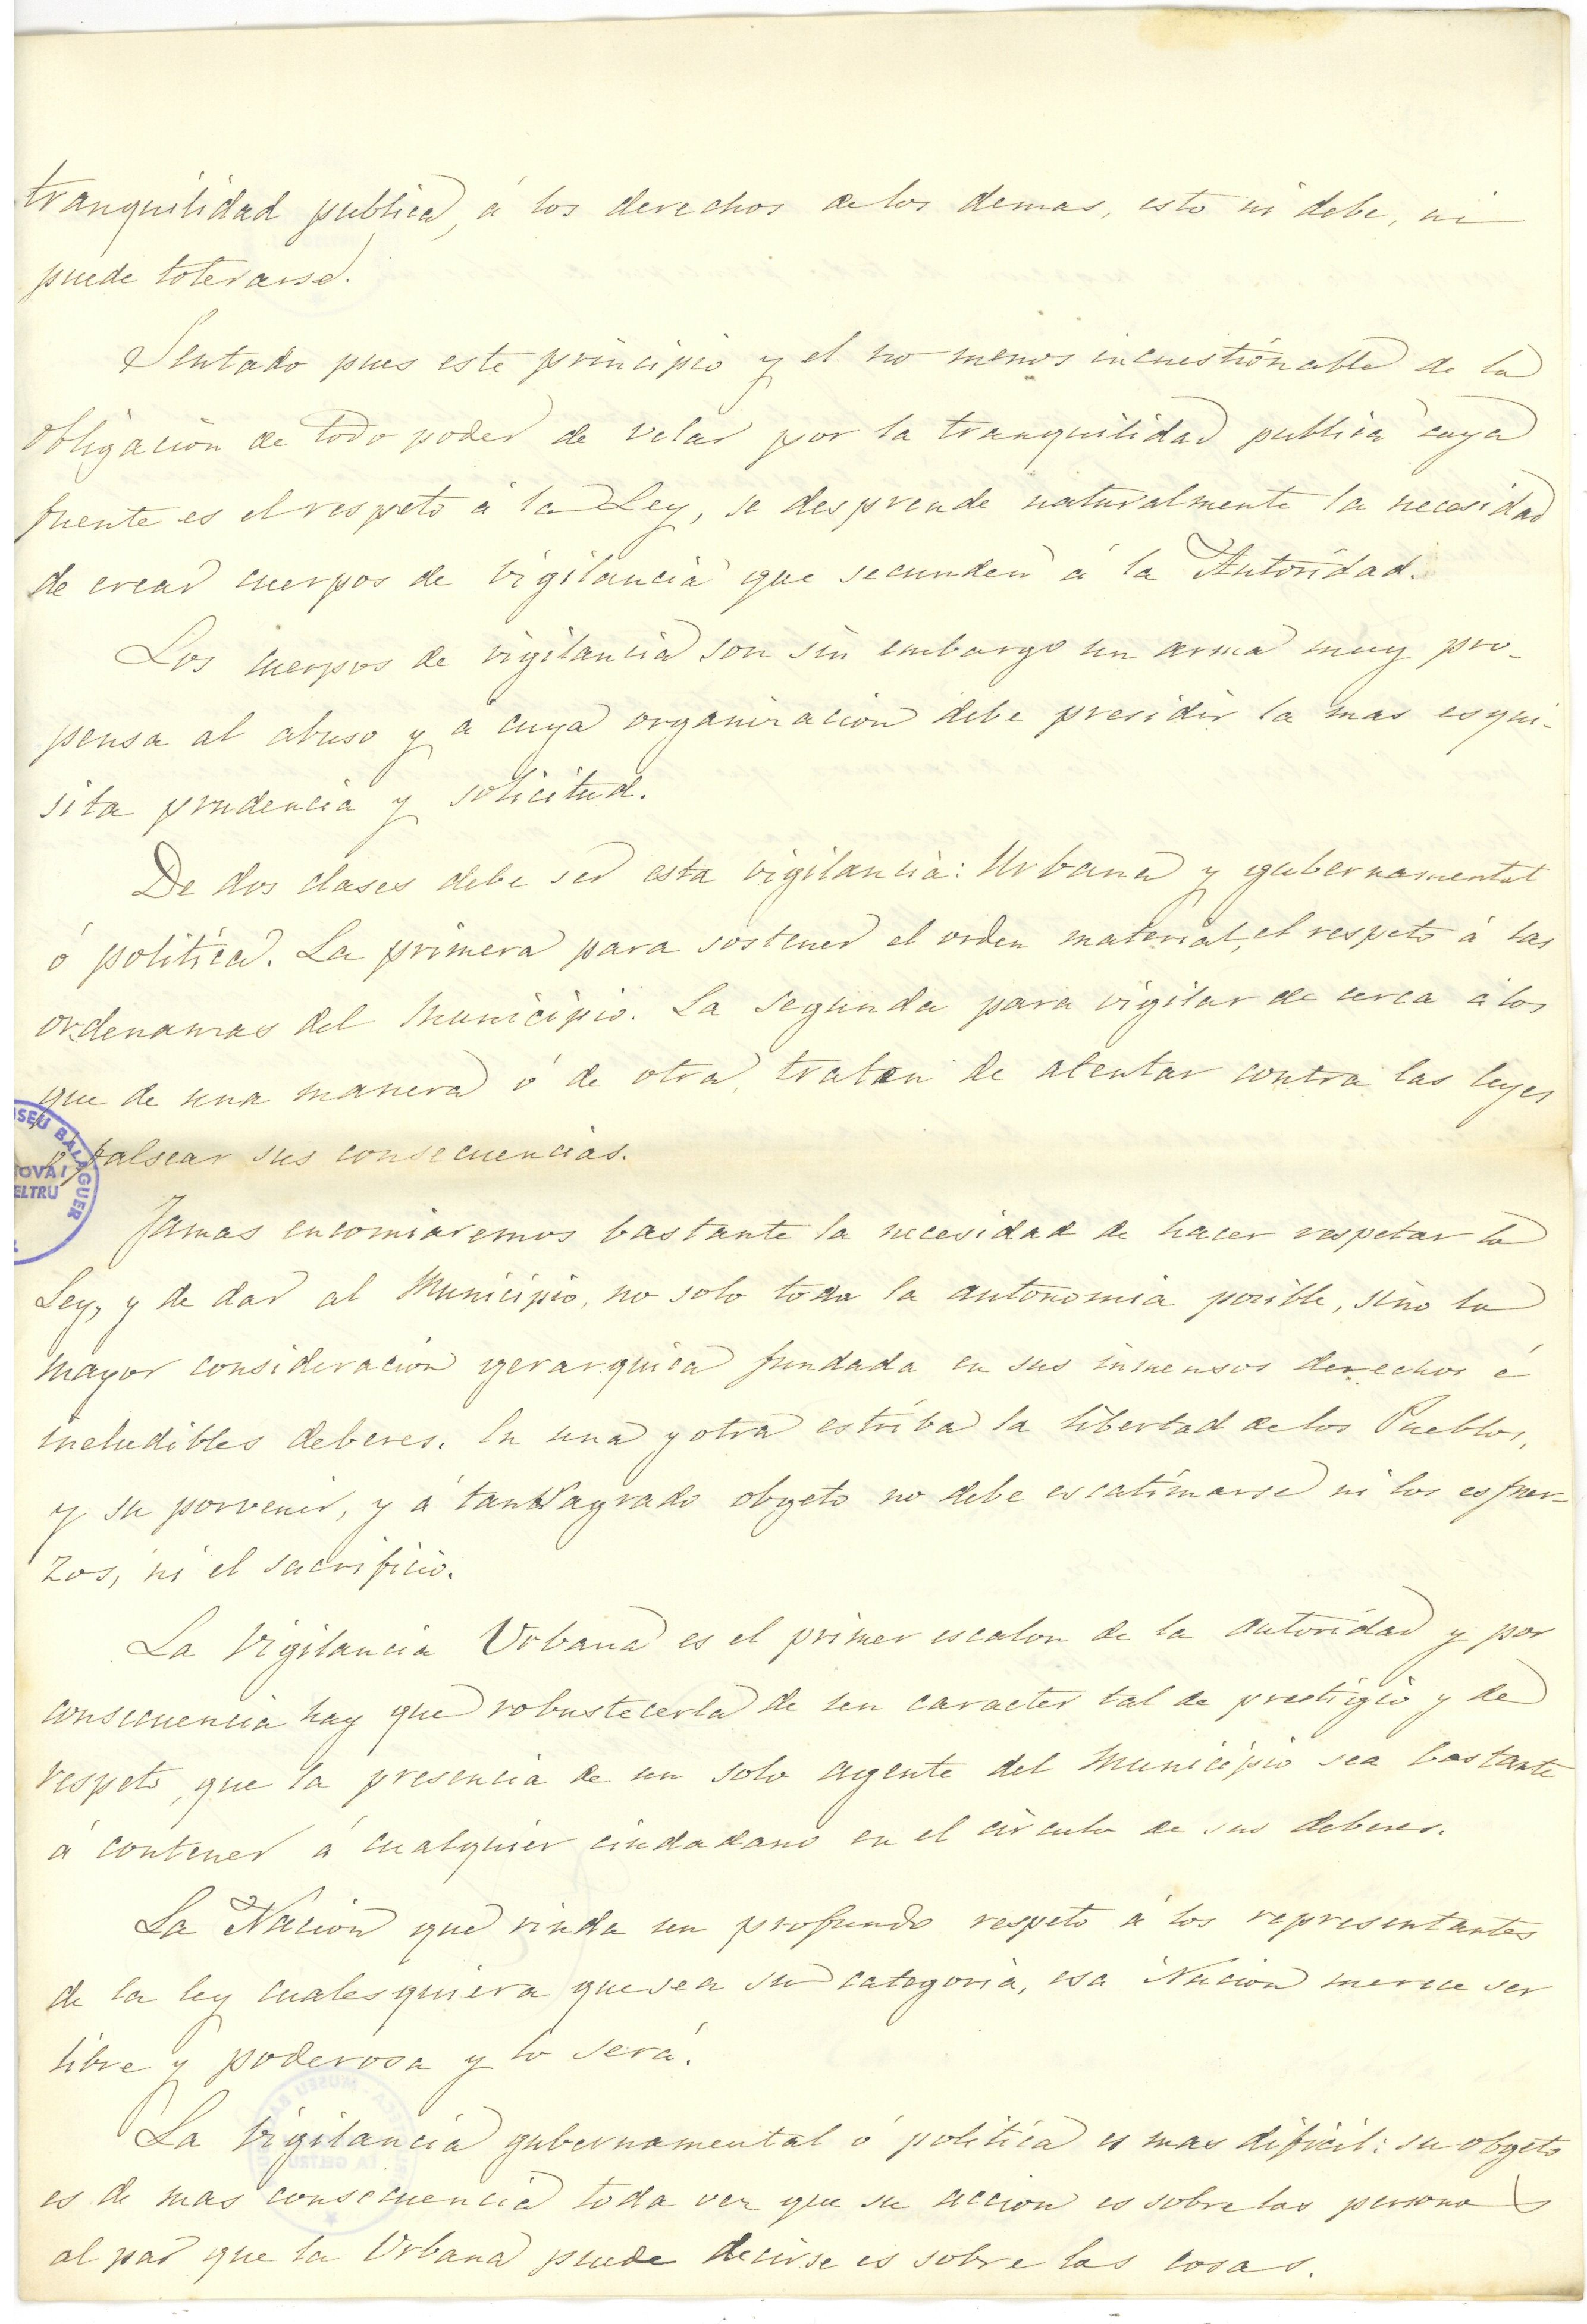 tranquilidad publica, á los derechos de los demas, esto ni debe, ni
puede tolerarse.
Sentado pues este principio y el no menos incuestionable de la
obligacion de todo poder de velar por la tranquilidad publica cuya
fuente es el respeto á la Ley, se desprende naturalmente la necesidad
de crear cuerpos de vigilancia que secunden á la Autoridad.
Los cuerpos de vigilancia son sin embargo un arma muy pro-
pensa al abuso y á cuya organizacion debe presidir la mas esqui-
sita prudencia y solicitud.
De dos clases debe ser esta vigilancia: Urbana y gubernamental
ó politica. La primera para sostener el orden material, el respeto á las
ordenanzas del Municipio. La segunda para vigilar de cerca á los
que de una manera ó de otra, traten de atentar contra las leyes
y falsear sus consecuencias.
MUSEU BALAGUER
NOVA I
ELTRU
Jamas encomiaremos bastante la necesidad de hacer respetar la
Ley, y de dar al Municipio, no solo toda la autonomia posible, sino la
mayor consideracion gerarquica fundada en sus inmensos derechos é
ineludibles deberes. En una y otra estriba la libertad de los Pueblos,
y su porvenir, y á tan Sagrado obgeto no debe escatimarse ni los esfuer-
zos, ni el sacrificio.
La Vigilancia Urbana es el primer escalon de la autoridad y por
consecuencia hay que robustecerla de un caracter tal de prestigio y de
respeto, que la presencia de un solo agente del Municipio sea bastante
á contener á cualquier ciudadano en el circulo de sus deberes.
La Nacion que rinda un profundo respeto á los representantes
de la ley cualesquiera que sea su categoria, esa Nacion merece ser
libre y poderosa y lo será.
La Vigilancia gubernamental ó politica es mas dificil: su obgeto
es de mas consecuencia toda vez que su accion es sobre las personas
al par que la Urbana puede decirse es sobre las cosas.